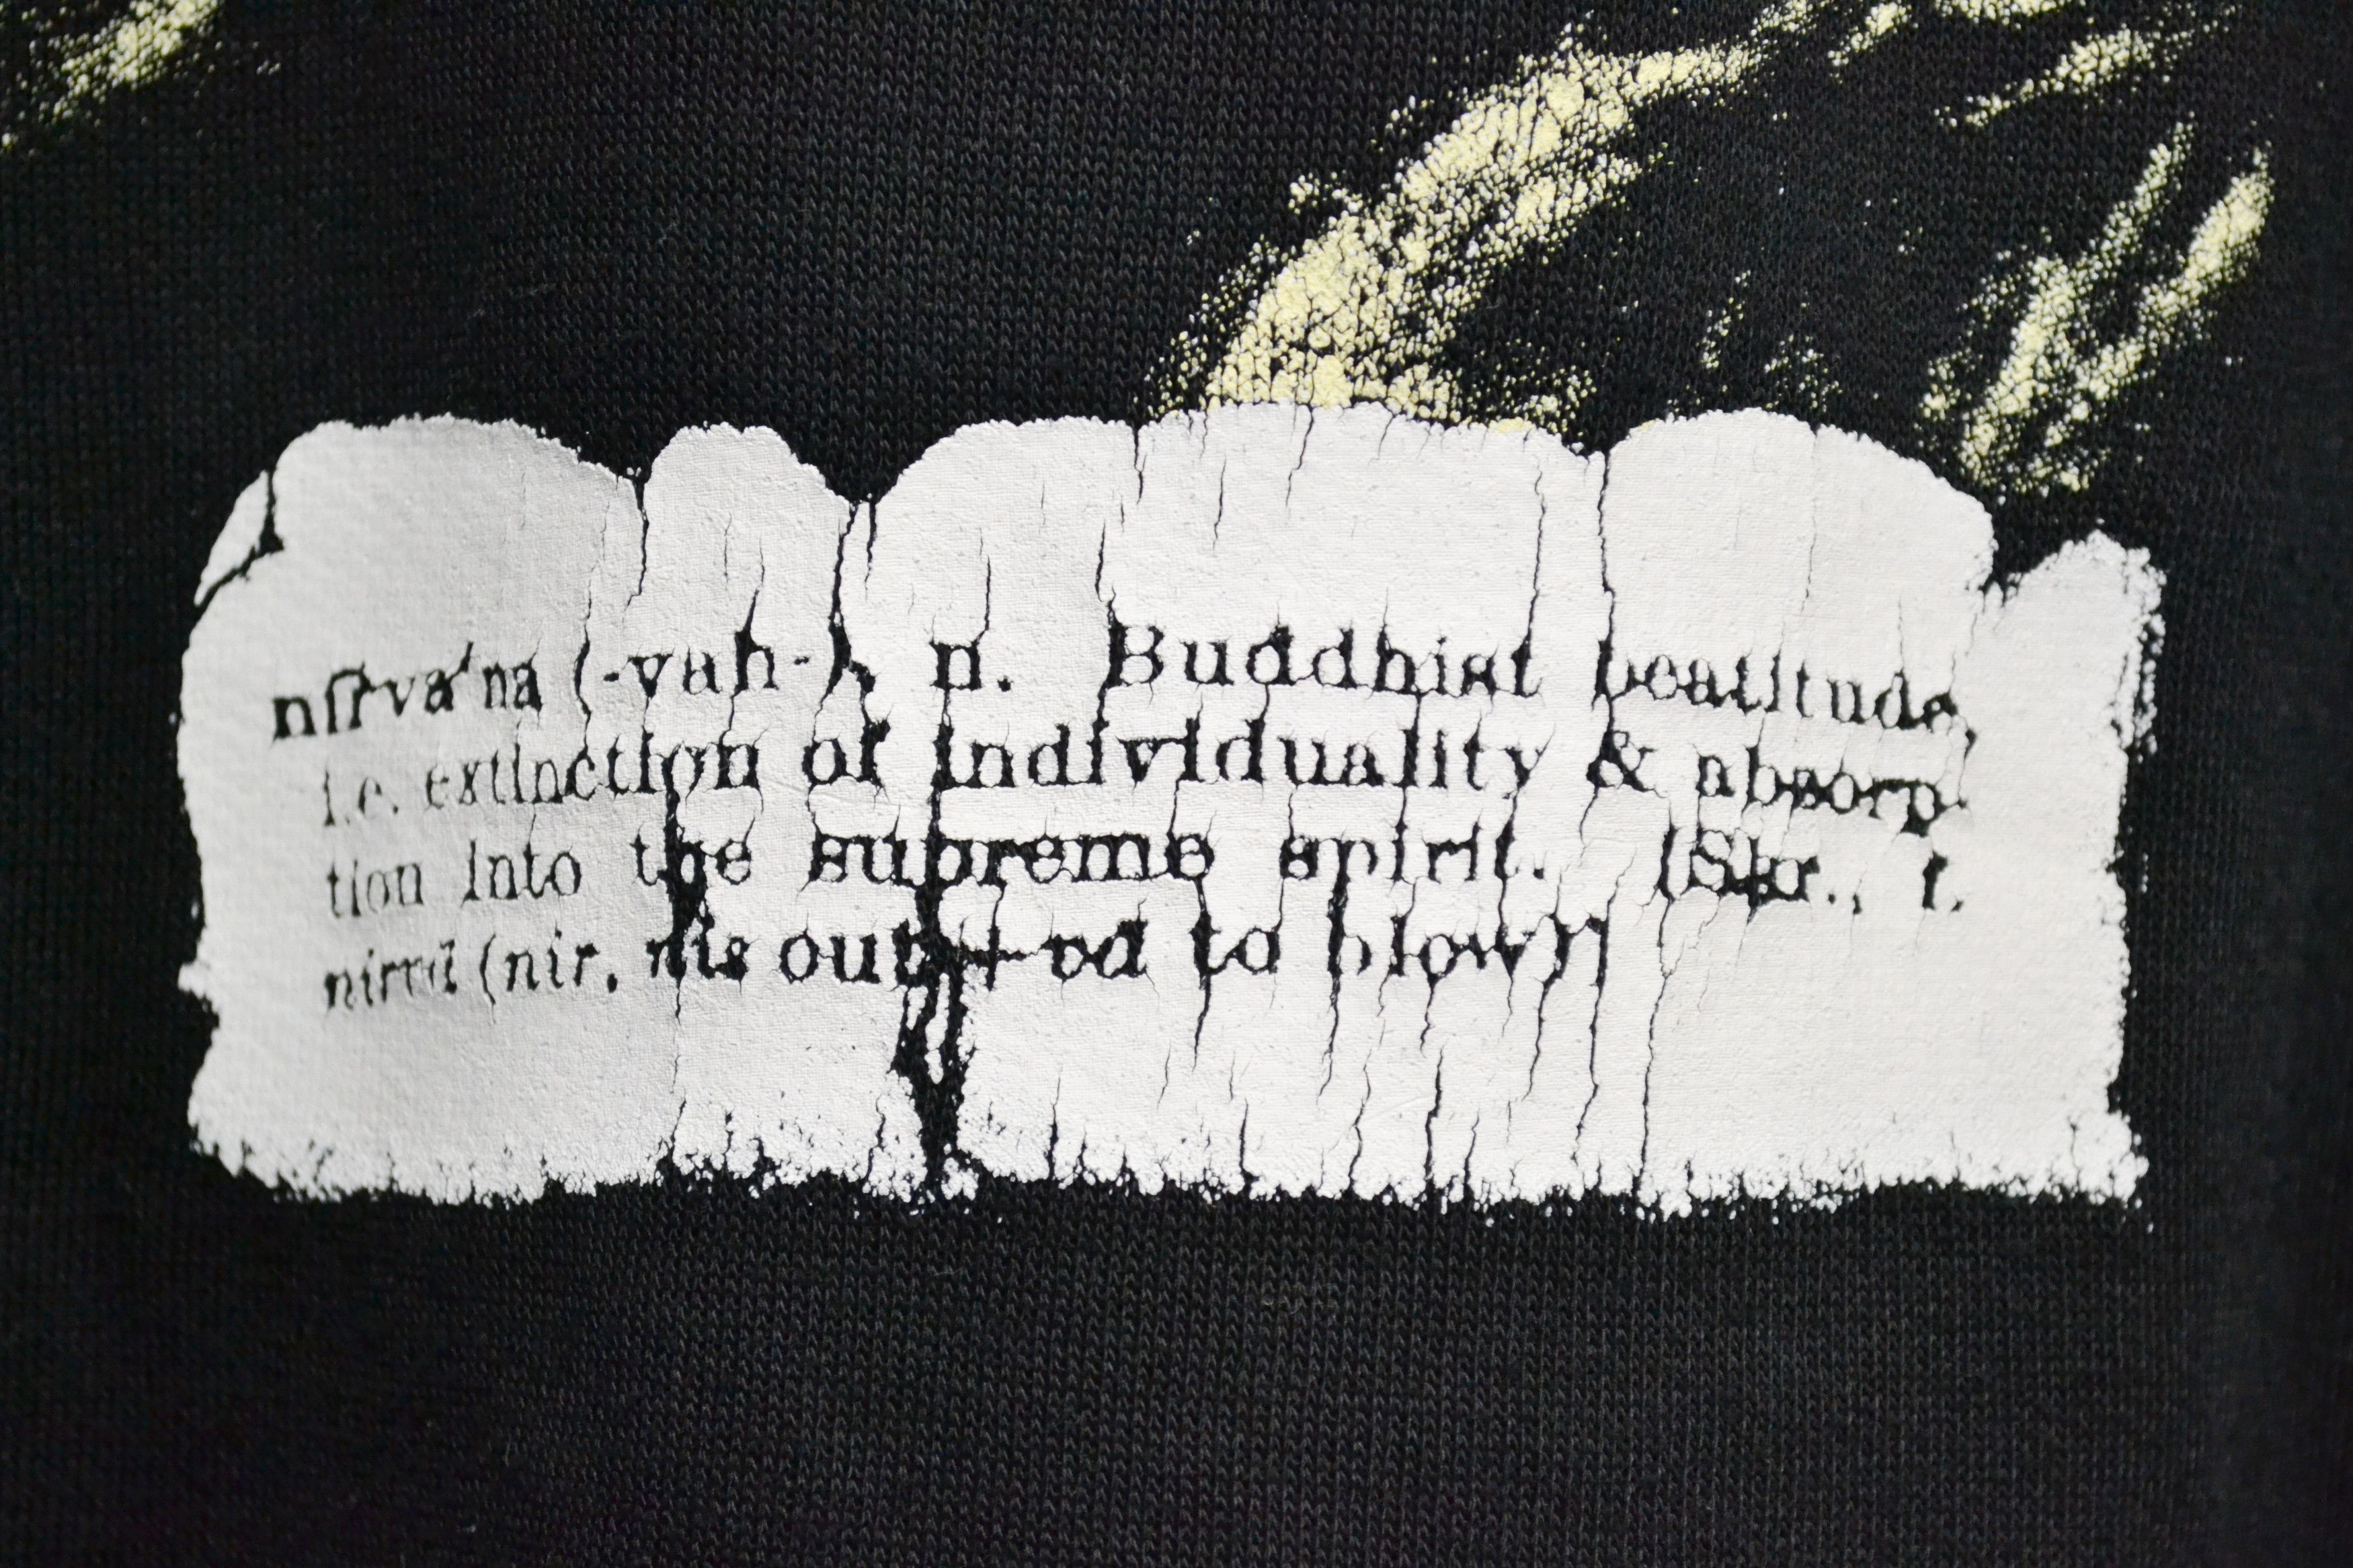 nïrva'na (-vah-), n. Buddhist beatitude,
i.e. extinction of individuality & absorp-
tion into the supreme spirit. [Skr., f.
nirvā (nir, nis out + vā to blow)]